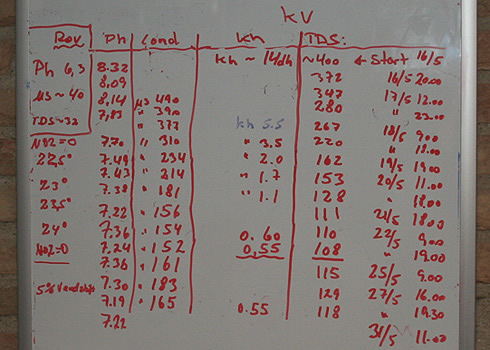 KV
Rov Ph Cond kh TDS:
Ph 6,3 8.32 kh ~ 14/dh ~400 ← Start 16/5
8,09 372 16/5 20.00
µS ~ 40 8,14 µS 490 347 17/5 12.00
7,83 " 390 280 " 22.00
TDS ~ 32 " 377 kh 5.5 267 18/5 9.00
NO2 = 0 7.70 " 310 " 3.5 220 " 18.00
22,5° 7.49 " 234 " 2.0 162 19/5 19.00
7.43 " 214 " 1.7 153 20/5 11.00
23° 7.38 " 181 " 1.1 128 " 18.00
23,5° 7.22 " 156 111 21/5 18.00
24° 7.36 " 154 0.60 110 22/5 9.00
NO2=0 7.24 " 152 0,55 108 " 19.00
7.36 " 161 115 25/5 9.00
5% 7.30 " 183 129 27/5 16.00
7.19 " 165 0.55 118 " 19.30
7.22 31/5 11.00